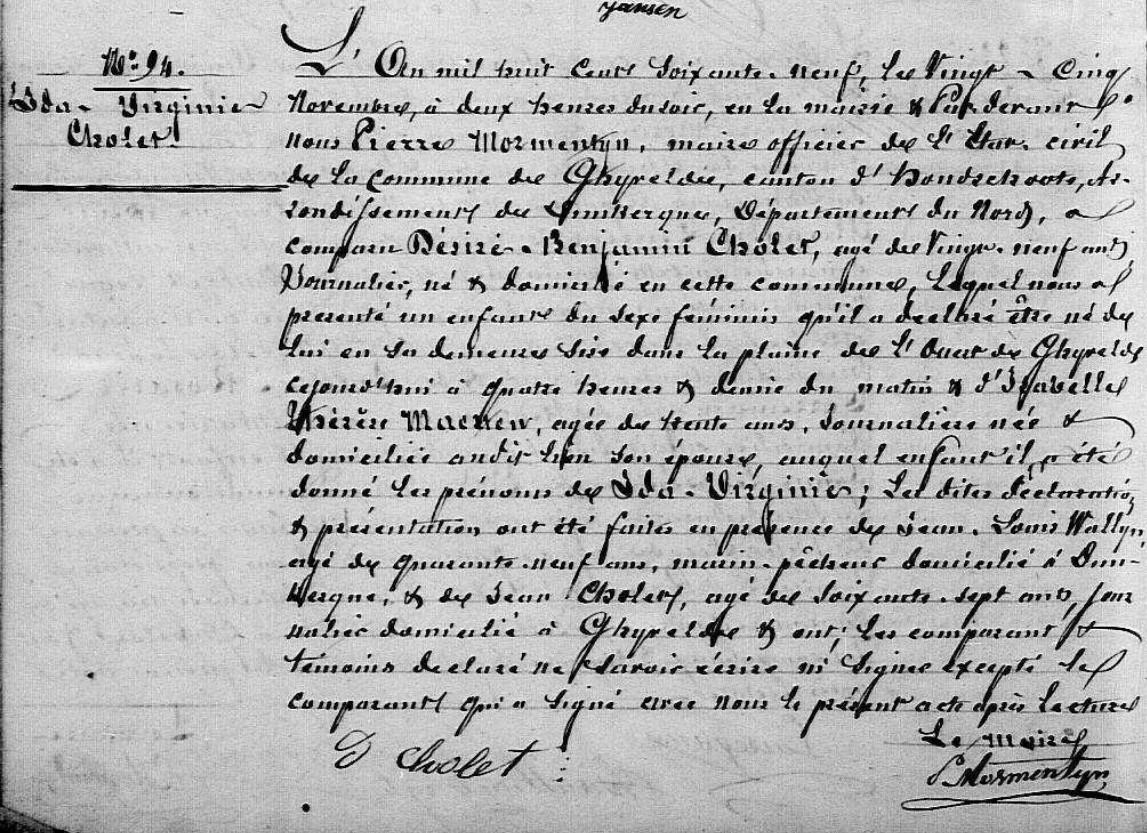 Jansen
N° 94.
Ida-Virginie
Cholet.
L'An mil huit cent soixante-neuf, le vingt-cinq
Novembre, à deux heures du soir, en la mairie & Par devant
nous Pierre Mormentyn, maire officier de l'État civil
de la commune de Ghyvelde, canton d'hondschoote, Ar-
rondissement de Dunkerque, Département du Nord, a
comparu Désiré-Benjamin Cholet, agé de Vingt-neuf ans,
Journalier, né & domicilié en cette commune, Lequel nous a
presenté un enfant du sexe féminin qu'il a declaré être né de
lui en sa demeure sise dans la plaine de l'Ouest de Ghyvelde
cejourd'hui à quatre heures & demie du matin & d'Isavelle
Thérèse Macrew, agée de trente ans, Journalière née &
domiciliée audit lieu son épouse, auquel enfant il a été
donné les prénoms de Ida-Virginie; Les dites déclaration
& présentation ont été faites en présence de Jean-Louis Wallyn,
agé de quarante-neuf ans, marin-pêcheur domicilié à Dun-
kerque, & de Jean Cholet, agé de soixante-sept ans, jour
nalier domicilié à Ghyvelde & ont, les comparant &
témoins declaré ne savoir écrire ni signer excepté le
comparant qui a signé avec nous le présent acte après lecture
D Cholet
Le Maire
P. Mormentyn